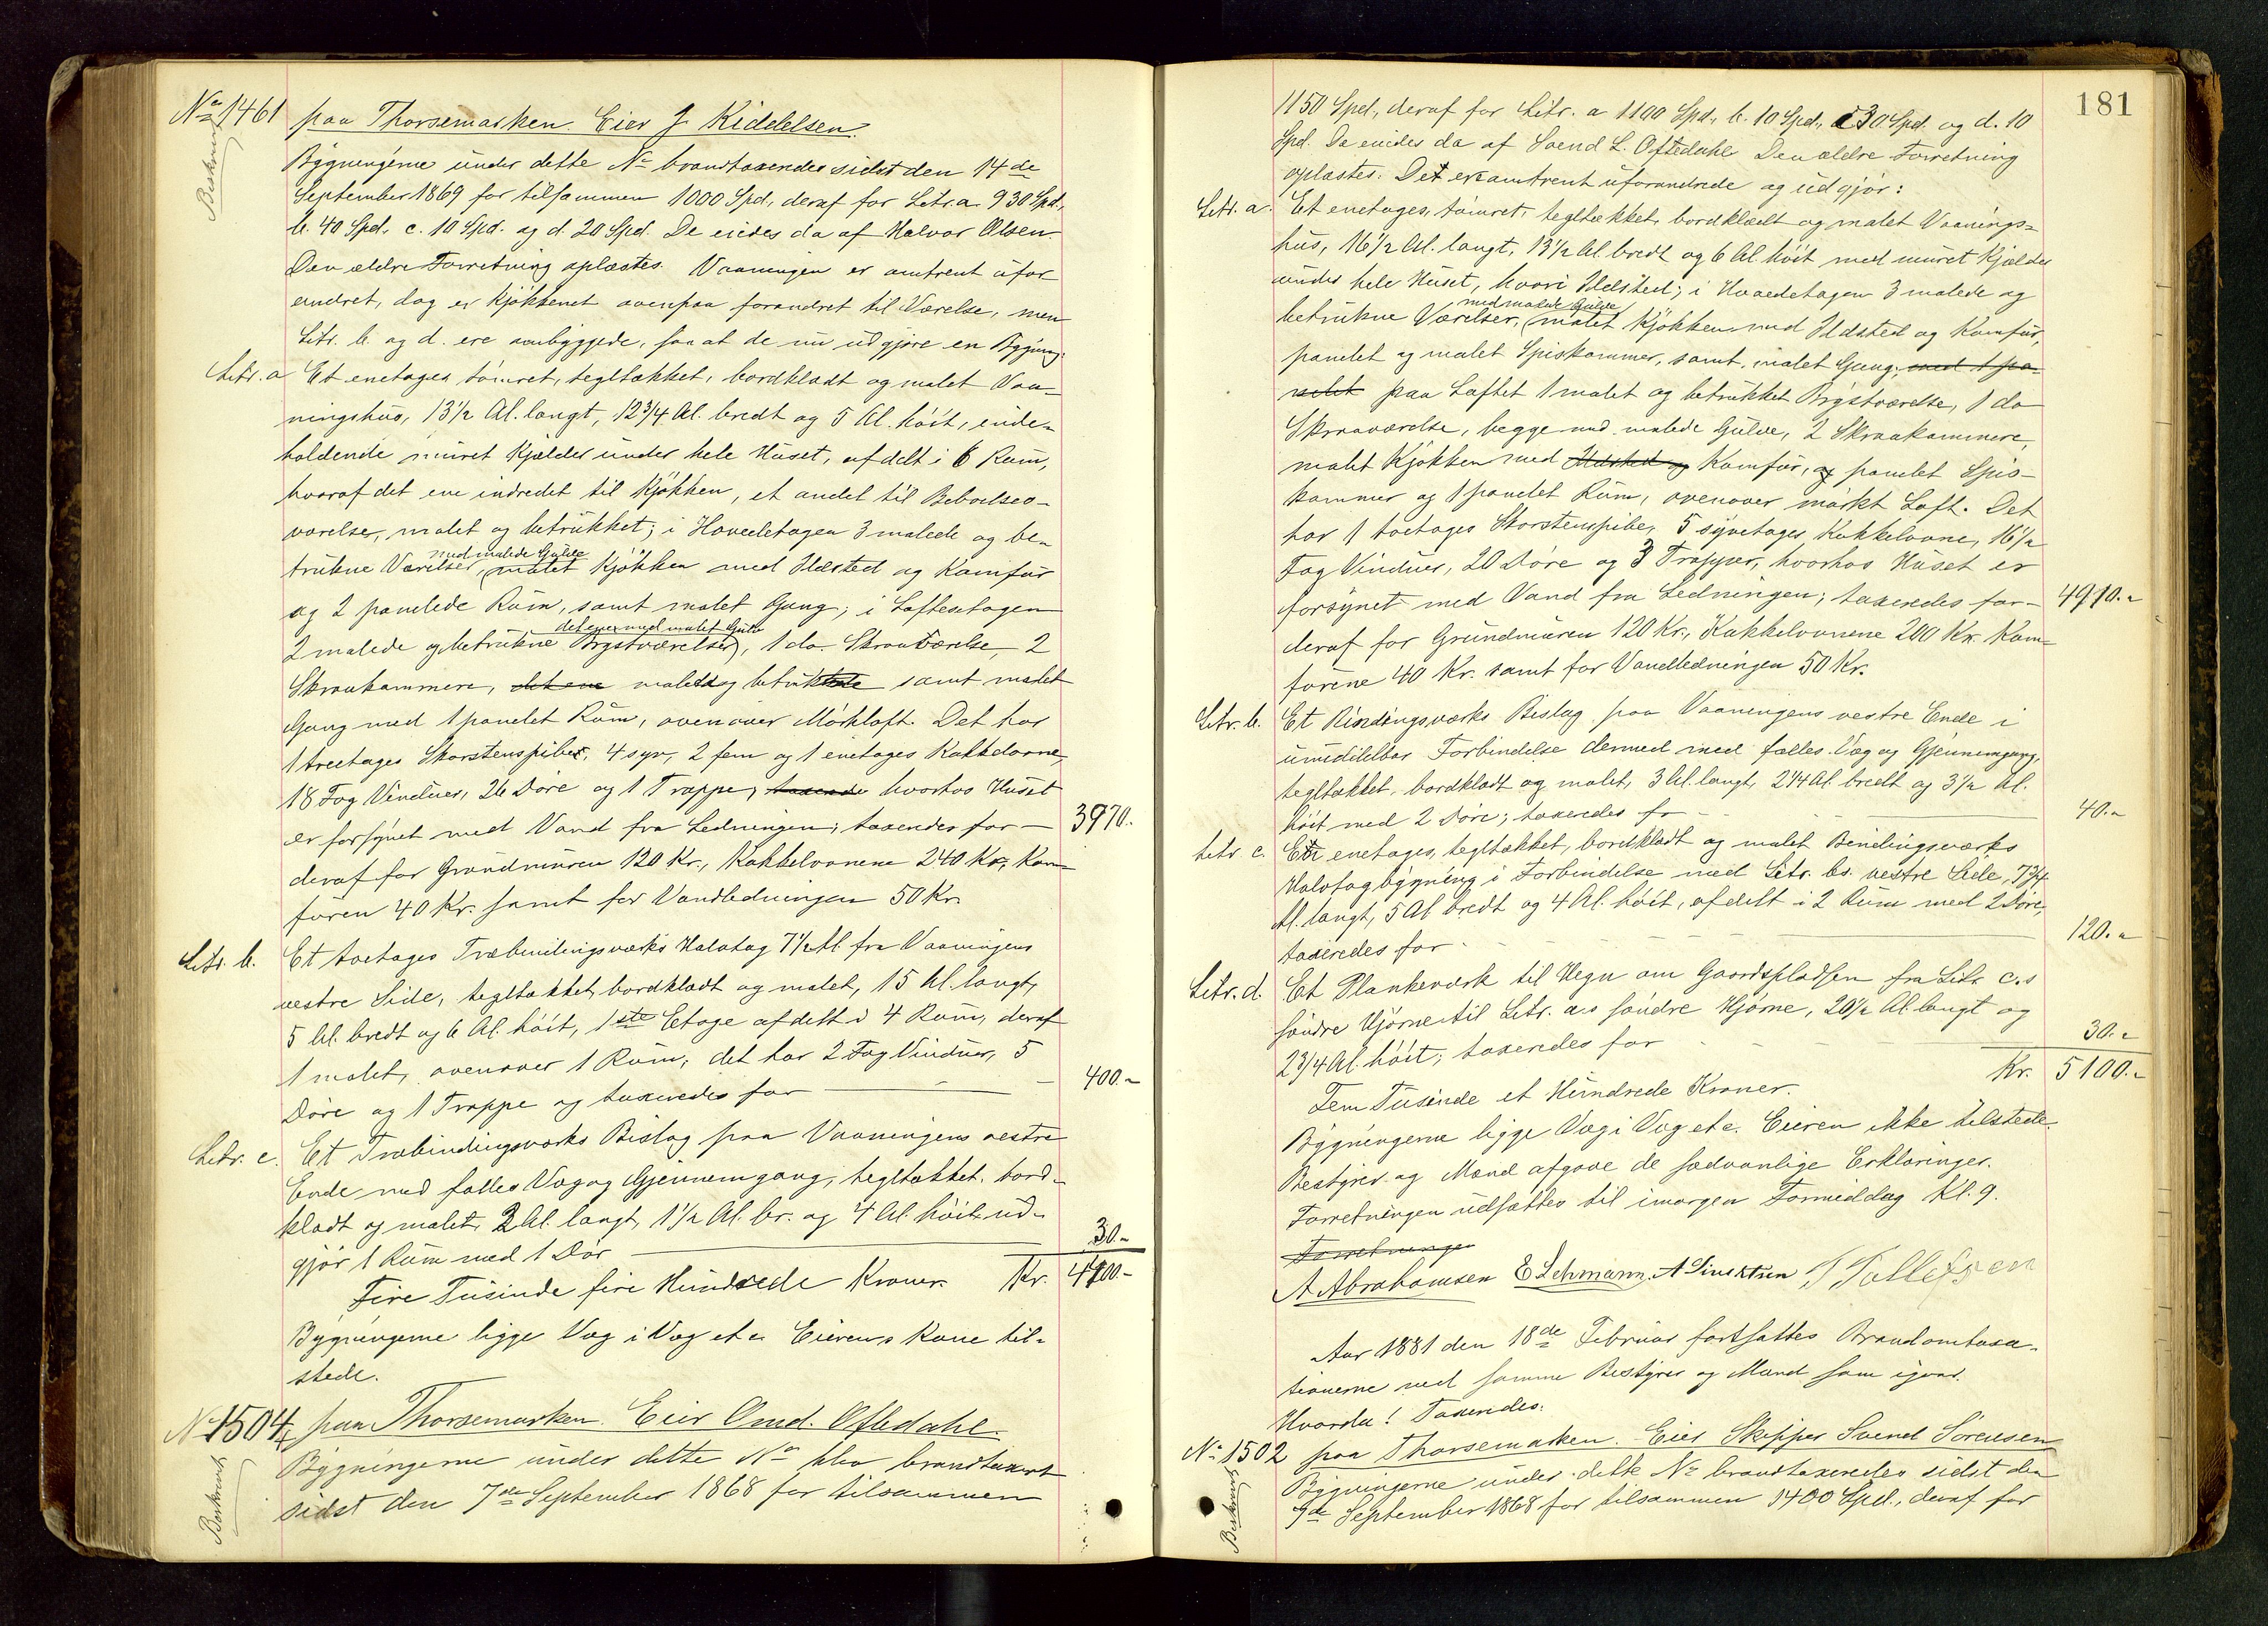 No 1461 paa Thorsemarken. Eier J. Kiddelsen.
Beskrevet
Bygningerne under dette No brandtaxeredes sidst den 14de
September 1869 for tilsammen 1000 Spd., deraf for Litr. a 930 Spd.,
b. 40 Spd., c. 10 Spd. og d. 20 Spd. De eiedes da af Halvor Olsen.
Den ældre Forretning oplæstes. Vaaningen er omtrent ufor
andret, dog er Kjøkkenet ovenpaa forandret til Værelse, men
Litr. b. og d. ere ombyggede, saa at de nu udgjøre en Bygning.
Litr. a Et enetages tømret, tegltækket, bordklædt og malet Vaa-
ningshus, 13 1/2 Al. langt, 12 3/4 Al. bredt og 5 Al. høit, inde-
holdende muret Kjælder under hele Huset, afdelt i 6 Rum,
hvoraf det ene indredet til Kjøkken, et andet til Beboelses-
værelse, malet og betrukket; i Hovedetagen 3 malede og be-
med malede Gulve
trukne Værelser, malet Kjøkken med Ildsted og Komfur
og 2 panelede Rum, samt malet Gang; i Loftsetagen
det ene med malet Gulv
2 malede og betrukne Brystværelser, 1 do. Skraaværelse, 2
Skraakammere, det ene malet og betrukket samt malet
Gang med 1 panelet Rum, ovenover Mørkloft. Det har
1 treetages Skorstenspibe, 4 syv, 2 fem og 1 enetages Kakkelovne,
18 Fag Vinduer, 26 Døre og 1 Trappe, taxeredes hvorhos Huset
er forsynet med Vand fra Ledningen; taxeredes for — 3970.
deraf for Grundmuren 120 Kr., Kakkelovnene 240 Kr., Kom-
furen 40 Kr. samt for Vandledningen 50 Kr.
Litr. b. Et toetages Træbindingsværks Halvtag 7 1/2 Al. fra Vaaningens
vestre Side, tegltækket, bordklædt og malet, 15 Al. langt,
5 Al. bredt og 6 Al. høit, 1ste Etage afdelt i 4 Rum, deraf
1 malet, ovenover 1 Rum; det har 2 Fag Vinduer, 5
Døre og 1 Trappe og taxeredes for — 400.-
Litr. c. Et Træbindingsværks Bislag paa Vaaningens vestre
Ende med fælles Væg og Gjennemgang, tegltækket, bord-
klædt og malet, 2 Al. langt, 1 1/2 Al. br. og 4 Al. høit, ud-
gjør 1 Rum med 1 Dør — 30.-
Fire Tusinde fire Hundrede Kroner. Kr. 4400.-
Bygningerne ligge Væg i Væg etc. Eierens Kone til-
stede.
No 1504, paa Thorsemarken. Eier Omd. Oftedahl.
Beskrevet
Bygningerne under dette No blev brandtaxeret
sidst den 7de September 1868 for tilsammen
181
1150 Spd., deraf for Litr. a 1100 Spd., b. 10 Spd., c 30 Spd. og d. 10
Spd. De eiedes da af Svend L. Oftedahl. Den ældre Forretning
oplæstes. Det er omtrent uforandrede og udgjør:
Litr. a. Et enetages, tømret, tegltækket, bordklædt og malet Vaanings-
hus, 16 1/2 Al. langt, 13 1/2 Al. bredt og 6 Al. høit med muret Kjælder
under hele Huset, hvori Ildsted; i Hovedetagen 3 malede og
med malede Gulve
betrukne Værelser, malet Kjøkken med Ildsted og Komfur,
panelet og malet Spiskammer, samt malet Gang, med 1 pa-
nelet paa Loftet 1 malet og betrukket Brystværelse, 1 do
Skraaværelse, begge med malede Gulve, 2 Skraakammere,
malet Kjøkken med Ildsted og Komfur, og panelet Spis-
kammer og 1 panelet Rum, ovenover mørkt Loft. Det
har 1 toetages Skorstenspibe, 5 syvetages Kakkelovne, 16 1/2
Fag Vinduer, 20 Døre og 3 Trapper, hvorhos Huset er
forsynet med Vand fra Ledningen; taxeredes for — 4910.-
deraf for Grundmuren 120 Kr., Kakkelovnene 200 Kr. Kom-
furene 40 Kr. samt for Vandledningen 50 Kr.
Litr. b. Et Bindingsværks Bislag paa Vaaningens vestre Ende i
umiddelbar Forbindelse dermed med fælles Væg og Gjennemgang,
tegltækket, bordklædt og malet, 3 Al. langt, 2 1/4 Al. bredt og 3 1/2 Al.
høit med 2 Døre; taxeredes for — 40.-
Litr. c. Et enetages, tegltækket, bordklædt og malet Bindingsværks
Halvtagbygning i Forbindelse med Litr. bs. vestre Side, 7 3/4
Al. langt, 5 Al bredt og 4 Al. høit, afdelt i 2 Rum med 2 Døre,
taxeredes for — 120.-
Litr. d. Et Plankeværk til Hegn om Gaardspladsen fra Litr. c.s
søndre Hjørne til Litr. a.s søndre Hjørne, 20 1/2 Al. langt og
2 3/4 Al. høit; taxeredes for — 30.-
Kr. 5100.-
Fem Tusinde et Hundrede Kroner.
Bygningerne ligge Væg i Væg etc. Eieren ikke tilstede.
Bestyrer og Mænd afgave de sædvanlige Erklæringer.
Forretningen udsættes til imorgen Formiddag Kl. 9.
Forretningen
A Abrahamsen E Lehmann. T Tollefsen
Aar 1881 den 18de Februar fortsattes Brandomtaxa-
tionerne med samme Bestyrer og Mænd som igaar.
Hvorda! Taxeredes.
No 1502 paa Thorsemarken. Eier Skipper Svend Sørensen
Beskrevet
Bygningerne under dette No brandtaxeredes sidst den
9de September 1868 for tilsammen 1400 Spd., deraf for